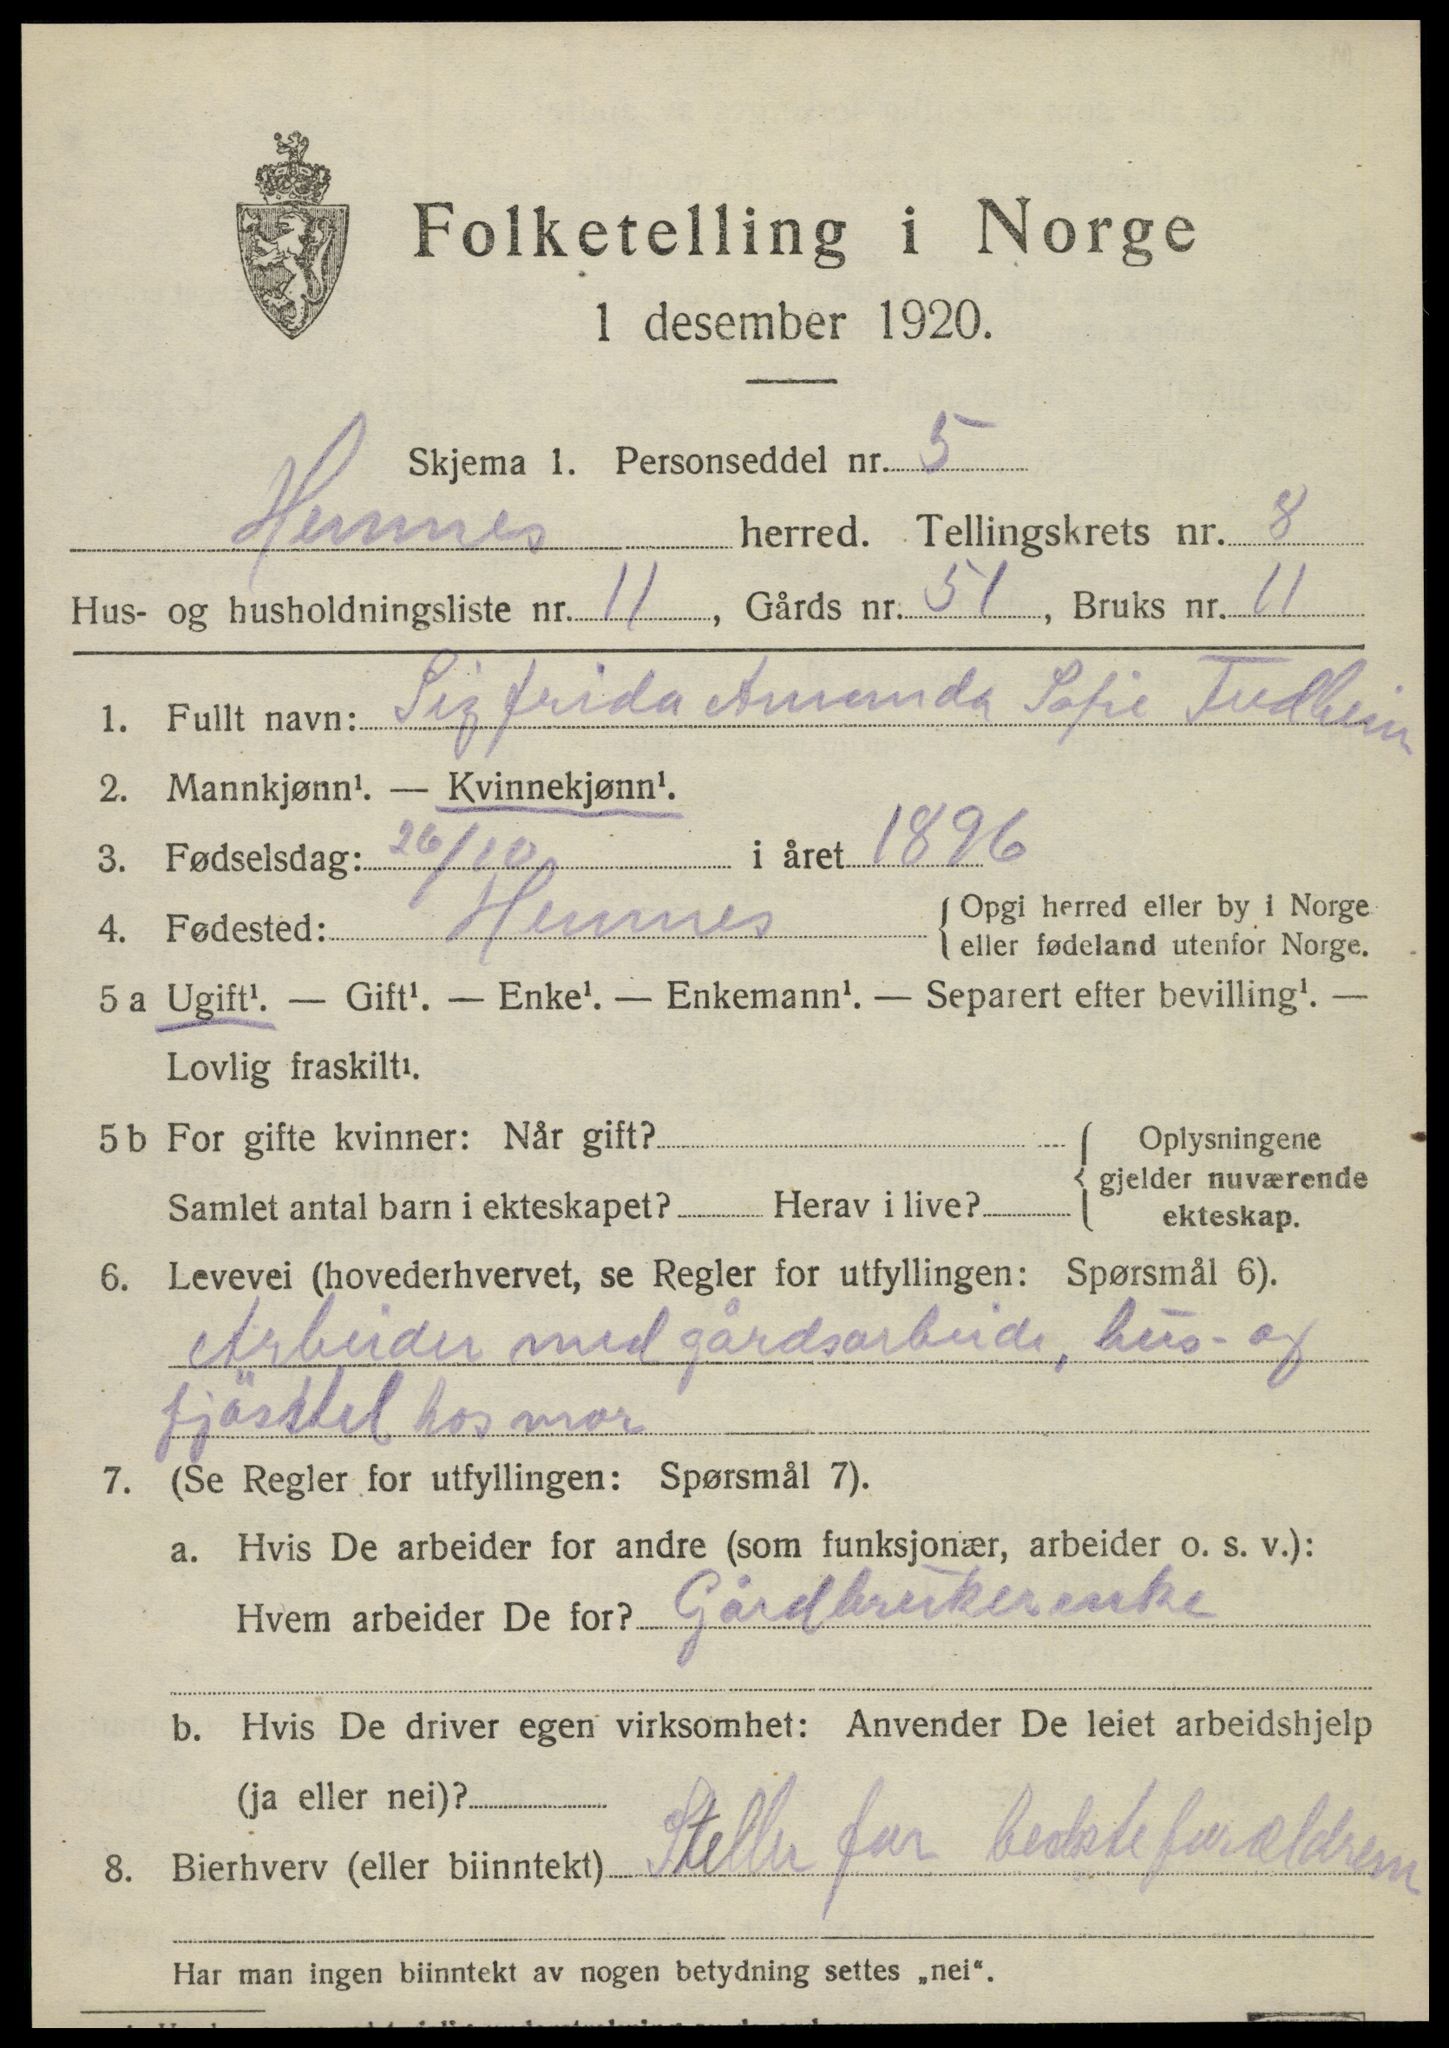 Folketelling i Norge
1 desember 1920.
Skjema 1. Personseddel nr. 5
Hemnes herred. Tellingskrets nr. 8
Hus- og husholdningsliste nr. 11, Gårds nr. 51, Bruks nr. 11
1. Fullt navn: Sigfrida Amanda Sofie
2. Mannkjønn¹. — Kvinnekjønn¹.
3. Fødselsdag: 26/10 i året 1896
4. Fødested: Hemnes { Opgi herred eller by i Norge
eller fødeland utenfor Norge.
5 a Ugift¹. — Gift¹. — Enke¹. — Enkemann¹. — Separert efter bevilling¹. —
Lovlig fraskilt¹.
5 b For gifte kvinner: Når gift? { Oplysningene
gjelder nuværende
Samlet antal barn i ekteskapet? Herav i live? ekteskap.
6. Levevei (hovederhvervet, se Regler for utfyllingen: Spørsmål 6).
Arbeider med gårdsarbeide, hus- og
fjösstel hos mor
7. (Se Regler for utfyllingen: Spørsmål 7).
a. Hvis De arbeider for andre (som funksjonær, arbeider o. s. v.):
Hvem arbeider De for? Gårdbrukerenke
b. Hvis De driver egen virksomhet: Anvender De leiet arbeidshjelp
(ja eller nei)?
8. Bierhverv (eller biinntekt) Steller for besteforældrene
Har man ingen biinntekt av nogen betydning settes „nei“.